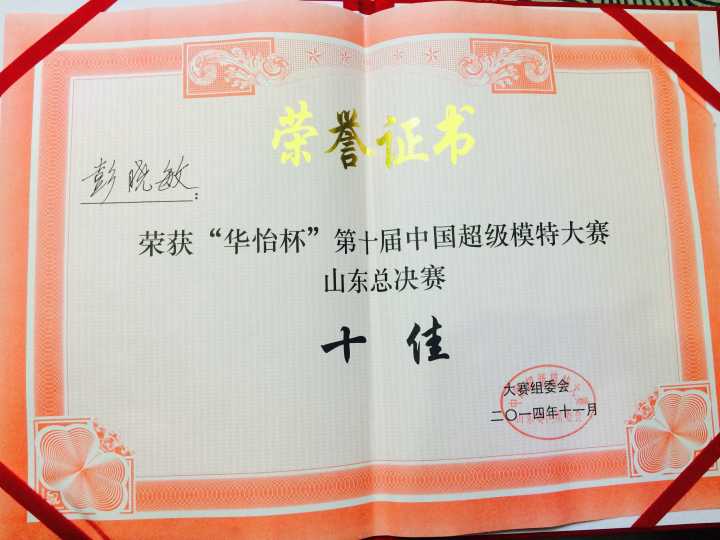 荣誉证书
彭晓敏：
荣获“华怡杯”第十届中国超级模特大赛
山东总决赛
十佳
大赛组委会
二〇一四年十一月